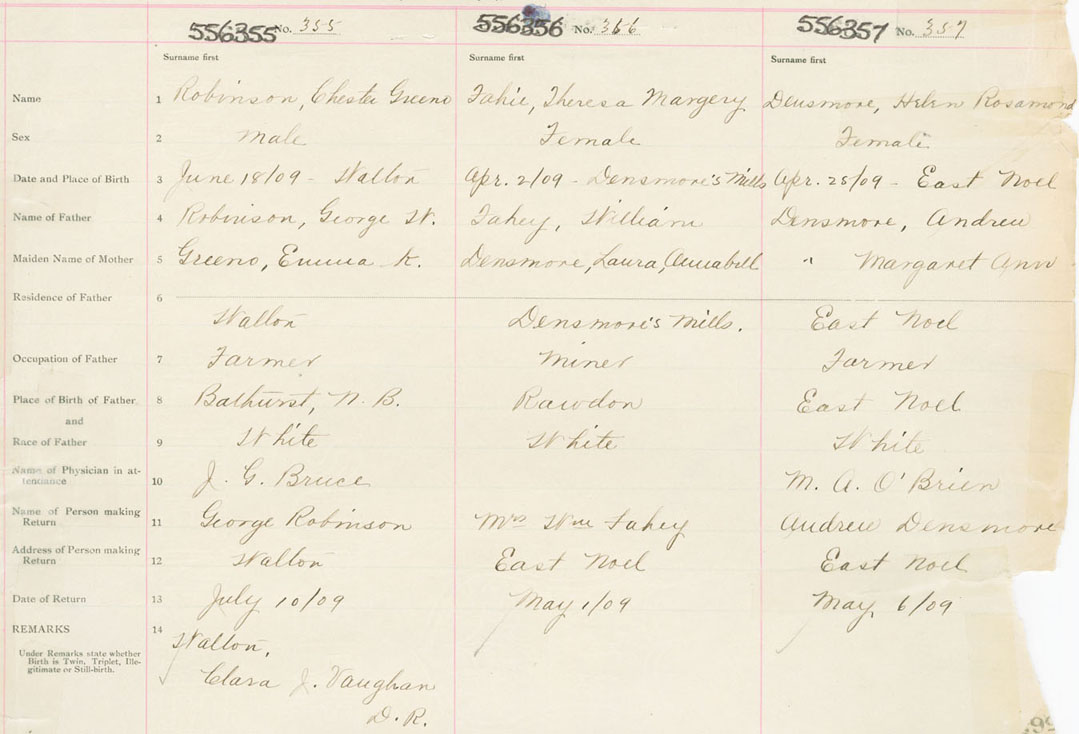 556355 No. 355 556356 No. 366 556357 No. 357
Surname first Surname first Surname first
Name 1 Robinson, Chester Greeno Fahie, Theresa Margery Densmore, Helen Rosamond
Sex 2 Male Female Female
Date and Place of Birth 3 June 18/09 - Walton Apr. 2/09 - Densmore's Mills Apr. 28/09 - East Noel
Name of Father 4 Robinson, George W. Fahey, William Densmore, Andrew
Maiden Name of Mother 5 Greeno, Emma K. Densmore, Laura, Annabell " Margaret Ann
Residence of Father 6
Walton Densmore's Mills. East Noel
Occupation of Father 7 Farmer Miner Farmer
Place of Birth of Father 8 Bathurst, N. B. Rawdon East Noel
and
Race of Father 9 White White White
Name of Physician in at-
tendance 10 J. G. Bruce M. A. O'Brien
Name of Person making
Return 11 George Robinson Mrs Wm Fahey Andrew Densmore
Address of Person making
Return 12 Walton East Noel East Noel
Date of Return 13 July 10/09 May 1/09 May 6/09
REMARKS 14 Walton,
Under Remarks state whether
Birth is Twin, Triplet, Ille-
gitimate or Still-birth.
Clara J. Vaughan
D. R.